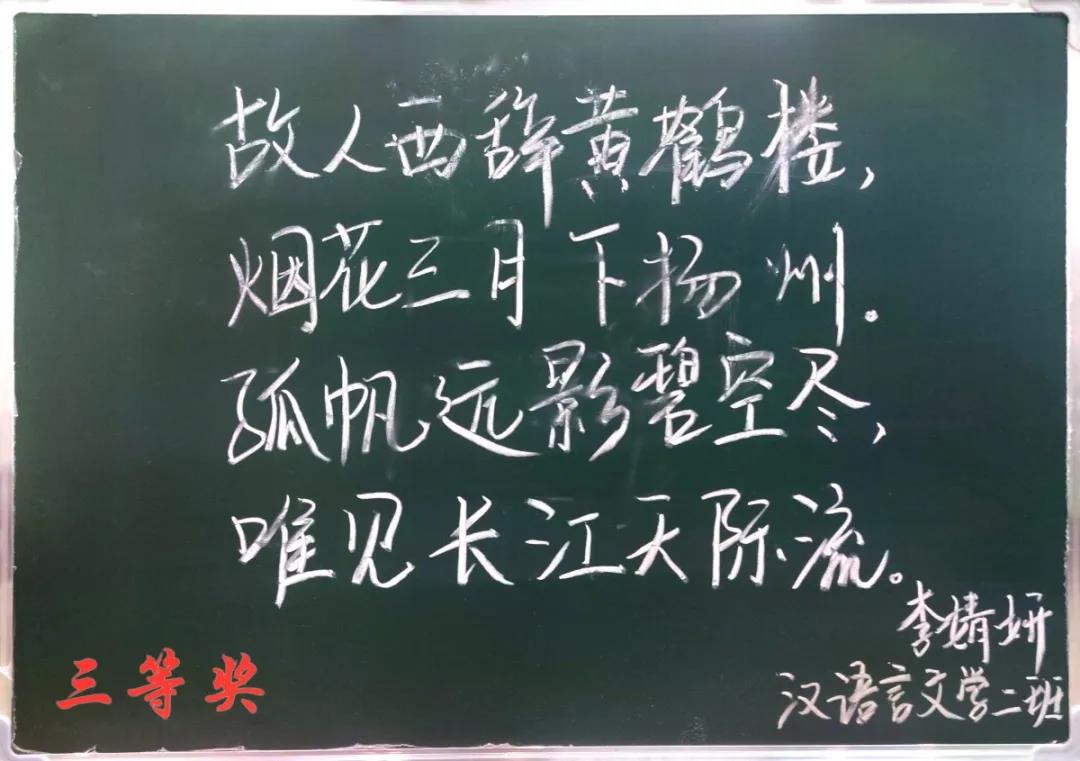 故人西辞黄鹤楼，
烟花三月下扬州。
孤帆远影碧空尽，
唯见长江天际流。
李婧妍
汉语言文学二班
三等奖